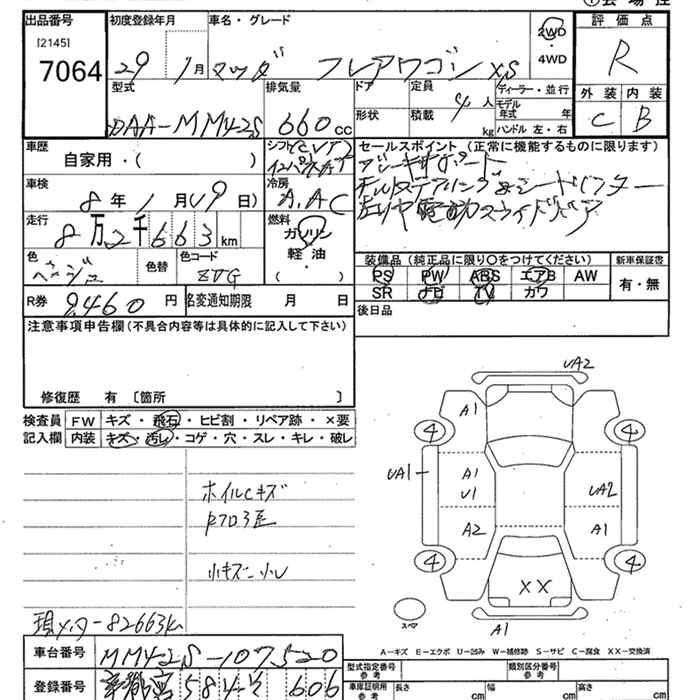 出品番号
[2145]
7064
初度登録年月
29 1月
車名・グレード
マツダ フレアワゴン XS
2WD
・
4WD
評価点
R
外装 内装
C B
型式
DAA-MM42S
排気量
660cc
ドア
形状
定員
4人
積載
kg
ディーラー・並行
モデル
年式 年
ハンドル 左・右
車歴
自家用・( )
シフト
冷房
A.AC
セールスポイント (正常に機能するものに限ります)
車検
8年1月(19日)
走行
8万2千663km
燃料
ガソリン
軽油
・
( )
色
ベージュ
色替
色コード
ZVG
装備品(純正品に限り〇をつけてください)
PS PW ABS エアB AW
SR ナビ TV カワ
新車保証書
有・無
R券 9,460円
名変通知期限 月 日
後日品
注意事項申告欄(不具合内容等は具体的に記入して下さい)
修復歴 有 〔箇所 〕
検査員
記入欄
FW キズ・飛石・ヒビ割・リペア跡・×要
内装 キズ・汚レ・コゲ・穴・スレ・キレ・破レ
ホイルCキズ
小キズ 小U
現メーター82663k
UA2
A1
4 4
UA1
A1
U1
UA2
A2
A1
4 4
XX
スペア
A1
A-キズ E-エクボ U-凹み W-補修跡 S-サビ C-腐食 XX-交換済
車台番号 MM42S-107520
登録番号 584 606
型式指定番号
参考
類別区分番号
参考
車庫証明用
参考
長さ cm
幅 cm
高さ cm